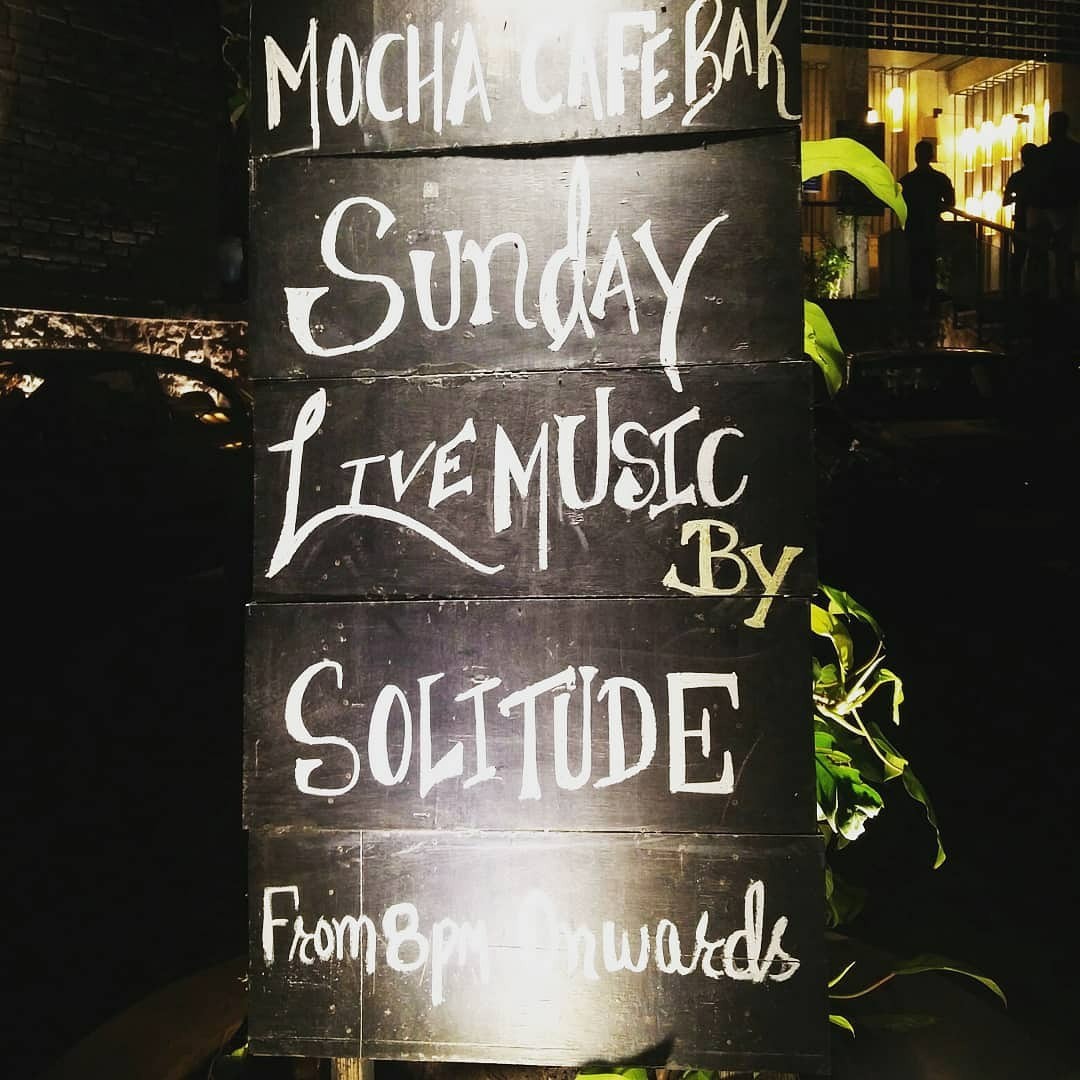 MOCHA CAFE BAR
Sunday
LIVE MUSIC
By
SOLITUDE
From 8pm Onwards